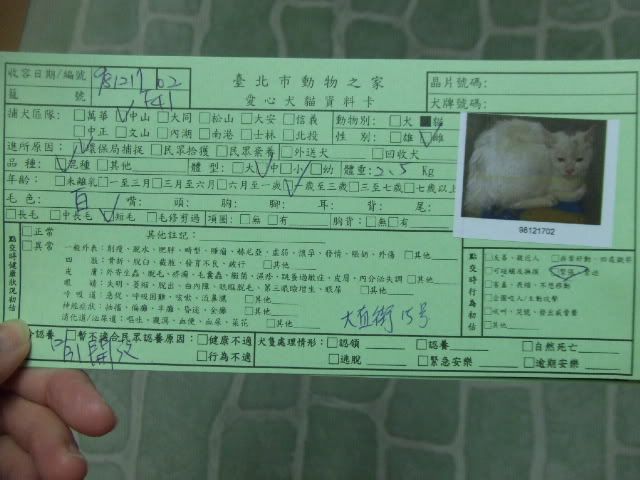 收容日期/編號 981217 02 臺北市動物之家 晶片號碼:
籠 號 F41 愛心犬貓資料卡 犬牌號碼:
捕犬區隊: □萬華 ☑中山 □大同 □松山 □大安 □信義 動物別: □犬 ■貓
□中正 □文山 □內湖 □南港 □士林 □北投 性 別: □雄 ☑雌
進所原因: ☑環保局捕捉 □民眾拾獲 □民眾棄養 □外送犬 □回收犬
品種: ☑混種 □其他 體型: □大 ☑中 □小 □幼 體重: 2.5 Kg
年齡: □未離乳 □一至三月 □三月至六月 □六月至一歲 ☑一歲至三歲 □三至七歲 □七歲以上
毛色: 白 嘴: 頭: 胸: 腳: 耳: 背: 尾:
□長毛 □中長毛 ☑短毛 □毛修剪過 項圈: □無 □有 胸背: □無 □有
98121702
點交時健康狀況初估 □正常 其他註記:
□異常 一般外表: 削瘦、脫水、肥胖、畸型、腫瘤、赫尼亞、虛弱、懷孕、發情、眼屎、外傷 □其他
四 肢: 骨折、脫臼、截肢、發育不良、跛行 □其他
皮 膚: 外寄生蟲、脫毛、疥癬、毛囊蟲、黴菌、濕疹、跳蚤過敏症、皮屑、內分泌失調 □其他
眼 睛: 失明、萎縮、脫出、白內障、眼瞼脫毛、第三眼瞼增生、眼屎 □其他
呼吸道: 急促、呼吸困難、咳嗽、流鼻膿 □其他
神經症狀: 抽搐、偏癱、半癱、昏迷、全癱 □其他
消化道/泌尿道: 嘔吐、腹瀉、血便、血尿、菜花 □其他
大直街15号
點交時行為初估 □友善、親近人
□可碰觸及撫摸
□害羞、畏縮、不想移動
□企圖咬人/主動攻擊
□吠叫、哭號、發出威脅聲
□其他
□暫不適合民眾認養原因: □健康不適 犬隻處理情形: □認領 □認養 □自然死亡
□行為不適 □逃脫 □緊急安樂 □逾期安樂